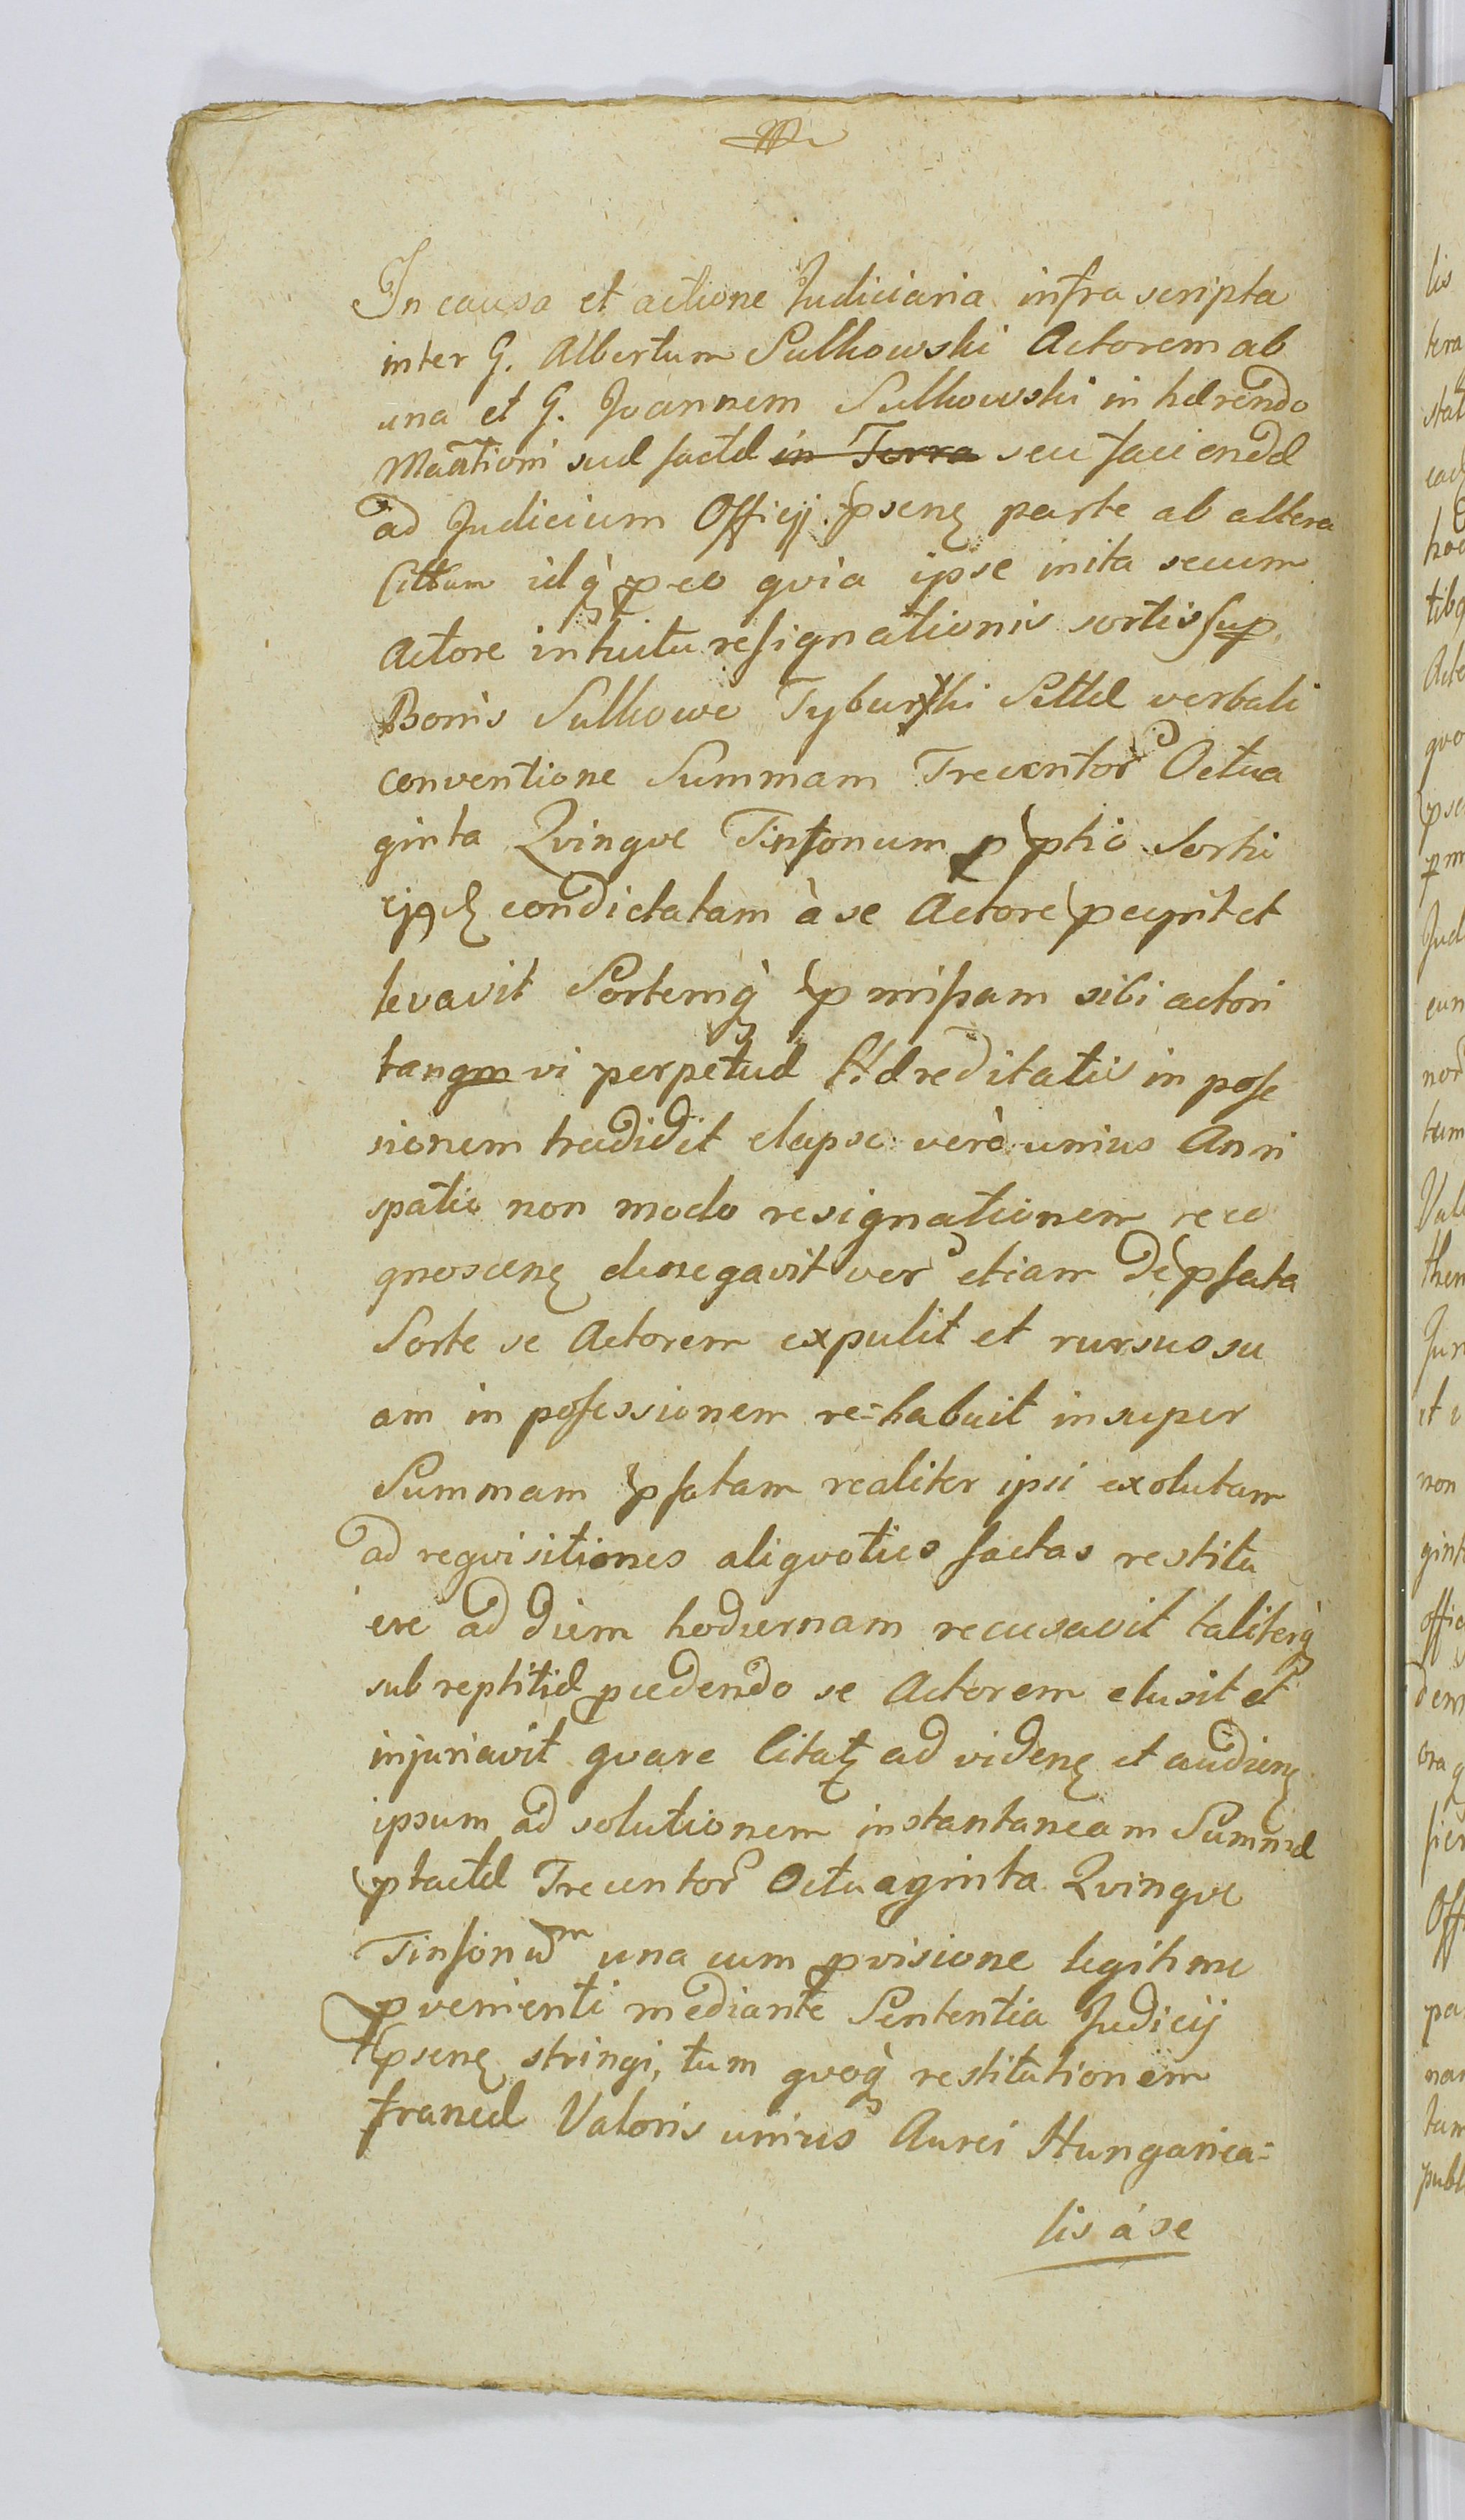 In causa et actione Judiciaria infra scripta
inter G. Albertum Sulkowski Actorem ab
una et G. Joannem Sulkowski in hærendo
Maãtioni suæ factæ in Terra seu faciendæ
ad Judicium Officij pseñ parte ab altera
Cittum idq̀ peo qvia ipse inita secum
Actore intuitu resignationis sortis sup
Bonis Sulkowe Tyburski Sittæ verbali
conventione Summam Trecentor Octua
ginta Qvinqve Tinfonum p ptio Sorti
ejqd condictatam à se Actore pcepit et
levavit Sortemq̀ pmissam sibi actori
tanqm vi perpetuæ Hæreditatis in posse
sionem tradidit elapso verò unius Anni
spatio non modo resignationem reco
gnosceñ denegavit ver etiam de psata
Sorte se Actorem expulit et rursus su
am in possessionem re=habuit insuper
Summam psatam realiter ipsi exolutam
ad reqvisitiones aliqvoties factas restitu
ere ad diem hodiernam recusavit taliterq̀
sub reptitiæ pcedendo se Actorem elusit et
injuriavit qvare Citat ad videñ et audieñ
ipsum ad solutionem instantaneam Summæ
ptactæ Trecentor Octuaginta Qvinqve
Tinfonum una cum pvisione legitime
pvenienti mediante Sententia Judicij
pseñ stringi, tum qvoq̀ restitutionem
frameæ Valoris unius Aurei Hungarica=
lis á se